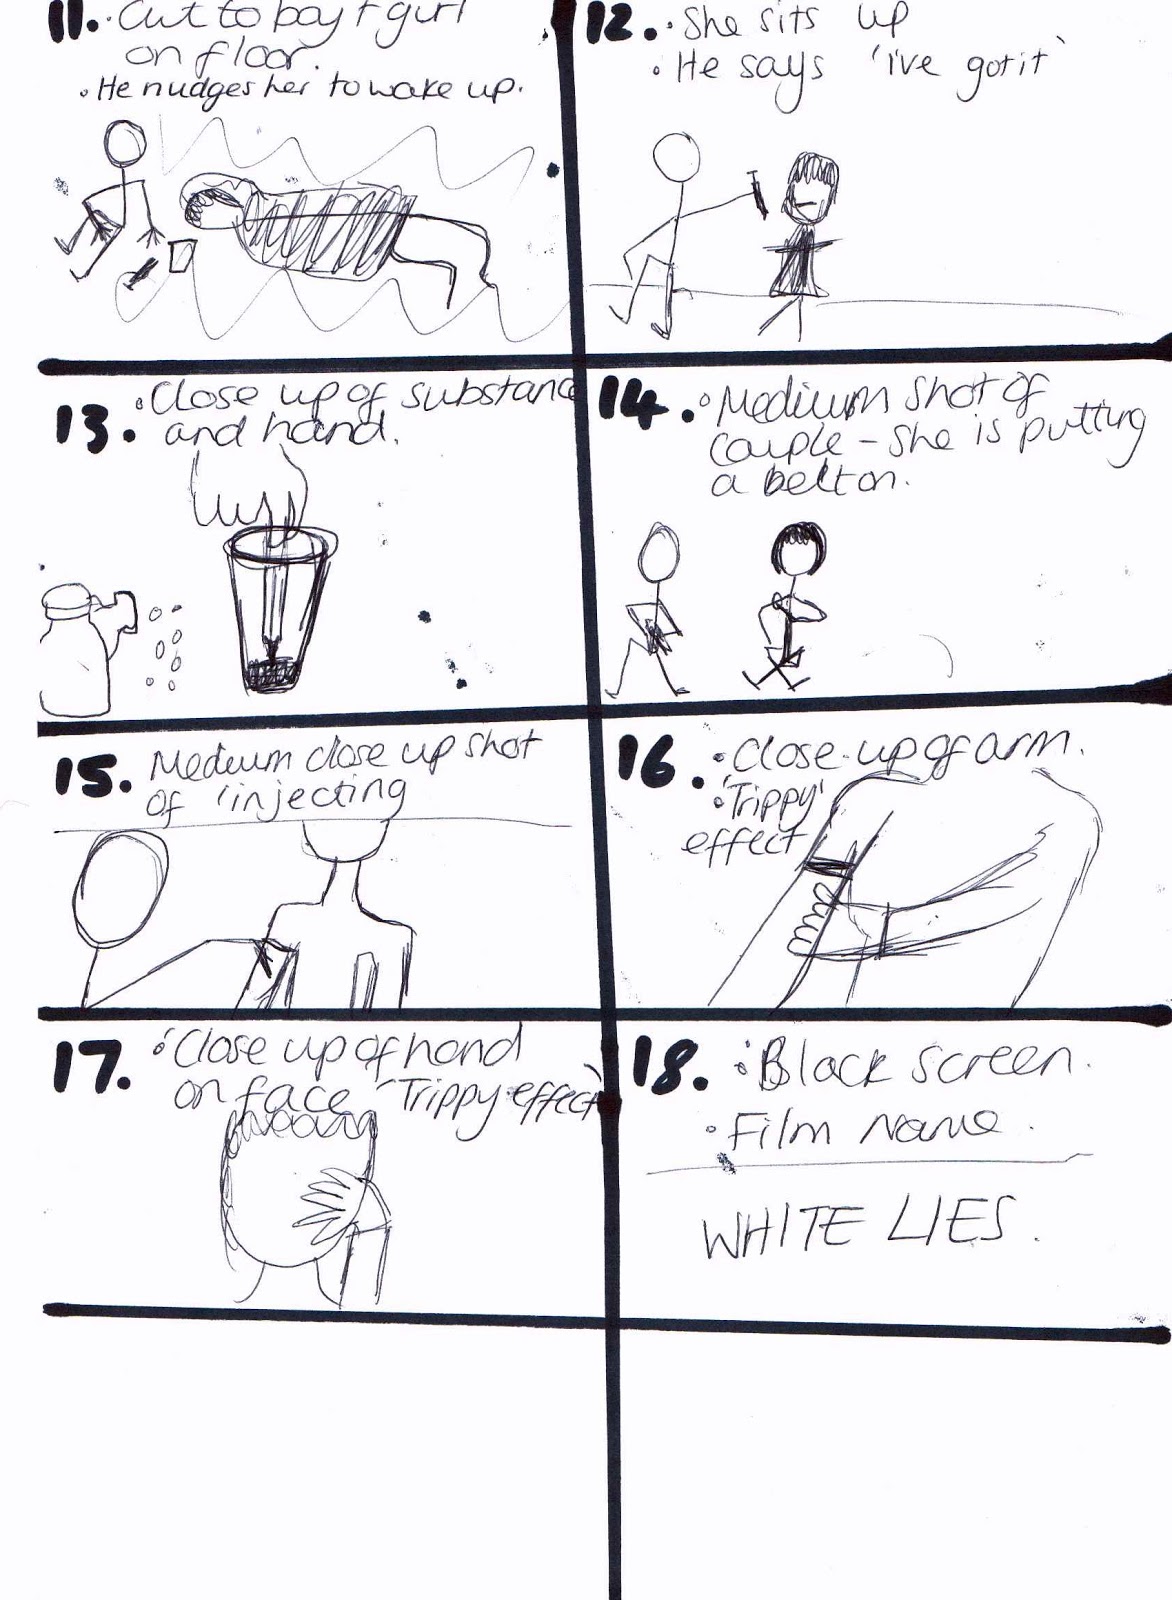 11. · Cut to boy + girl
on floor.
· He nudges her to wake up.
12. · She sits up
· He says 'i've got it'
13. · Close up of substance
and hand.
14. · Medium shot of
couple - she is putting
a belt on.
15. Medium close up shot
of 'injecting
16. · Close-up of arm.
· 'Trippy'
effect
17. · Close up of hand
on face 'Trippy effect'
18. · Black screen.
· Film Name.
WHITE LIES.